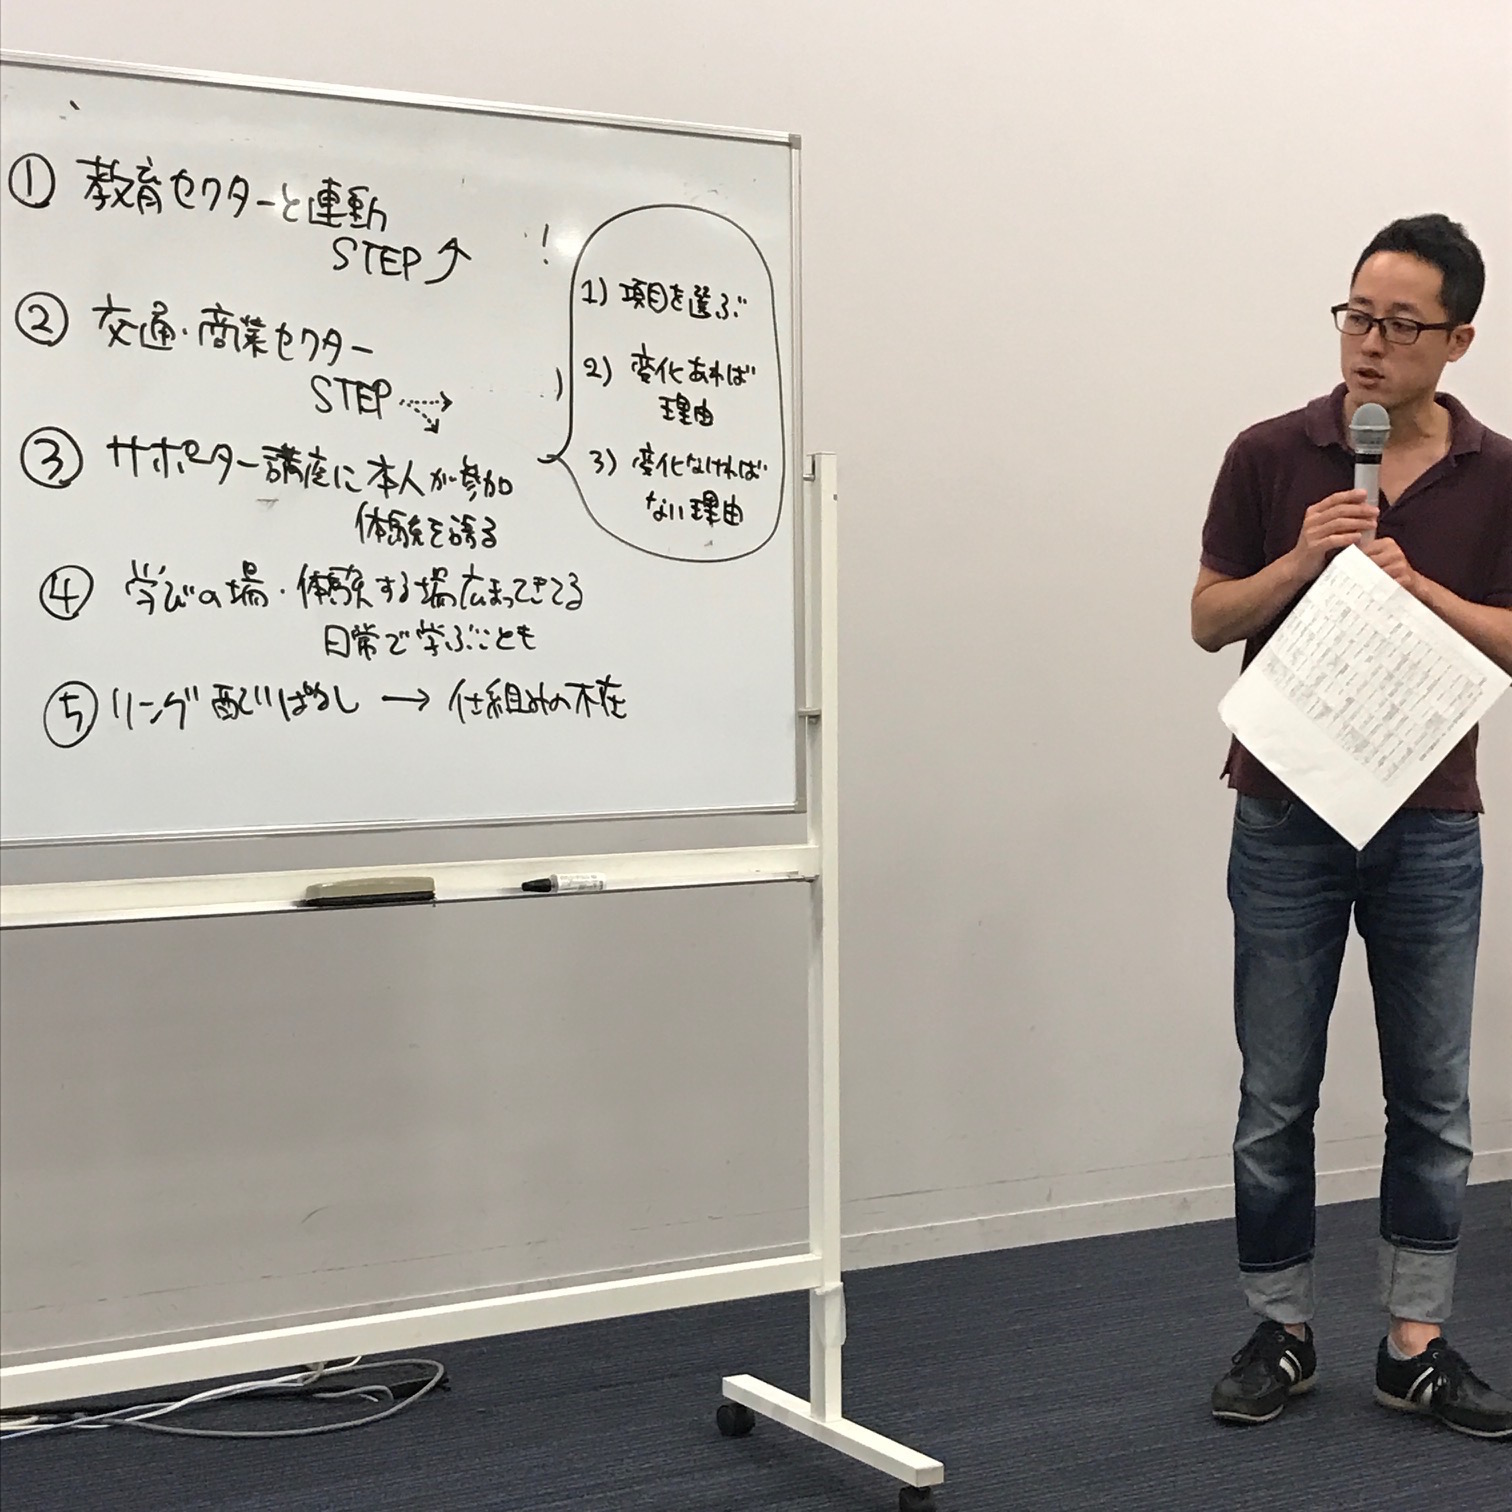 ① 教育セクターと連動
STEP ↑
② 交通・商業セクター
STEP
③ サポーター講座に本人が参加
体験を語る
④ 学びの場・体験する場広まってきてる
日常で学ぶことも
⑤ リング配りぱなし → 仕組みの不在
1) 項目を選ぶ
2) 変化あれば
理由
3) 変化なければ
ない理由